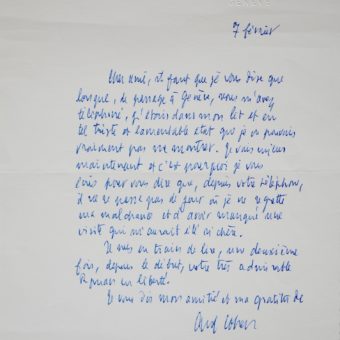 GENÈVE
7 février
Cher ami, il faut que je vous dise que
lorsque, de passage à Genève, vous m'avez
téléphoné, j'étais dans mon lit et en
tel triste et lamentable état que je ne pouvais
vraiment pas me montrer. Je vais mieux
maintenant et c'est pourquoi je vous
écris pour vous dire que, depuis votre téléphone,
il ne se passe pas de jour où je ne regrette
ma malchance et d'avoir manqué une
visite qui m'aurait été si chère.
Je suis en train de lire, une deuxième
fois, depuis le début, votre très admirable
en liberté.
Je vous dis mon amitié et ma gratitude
Cohen